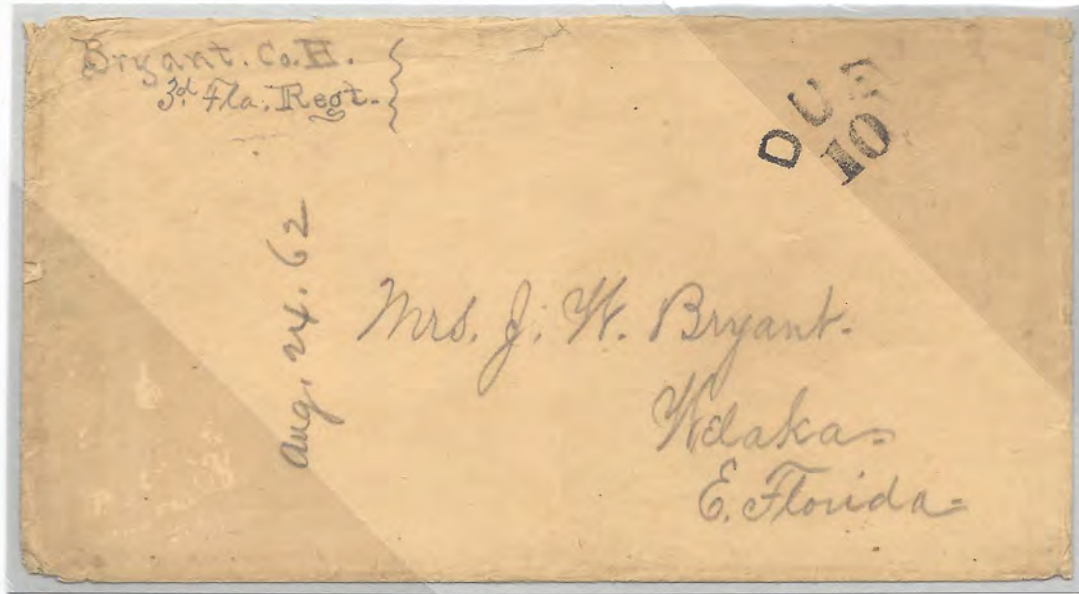 Bryant. Co. H.
3d. Fla. Regt.
DUE
10
Aug. 24. 62
Mrs. J. W. Bryant.
Welaka
E. Florida